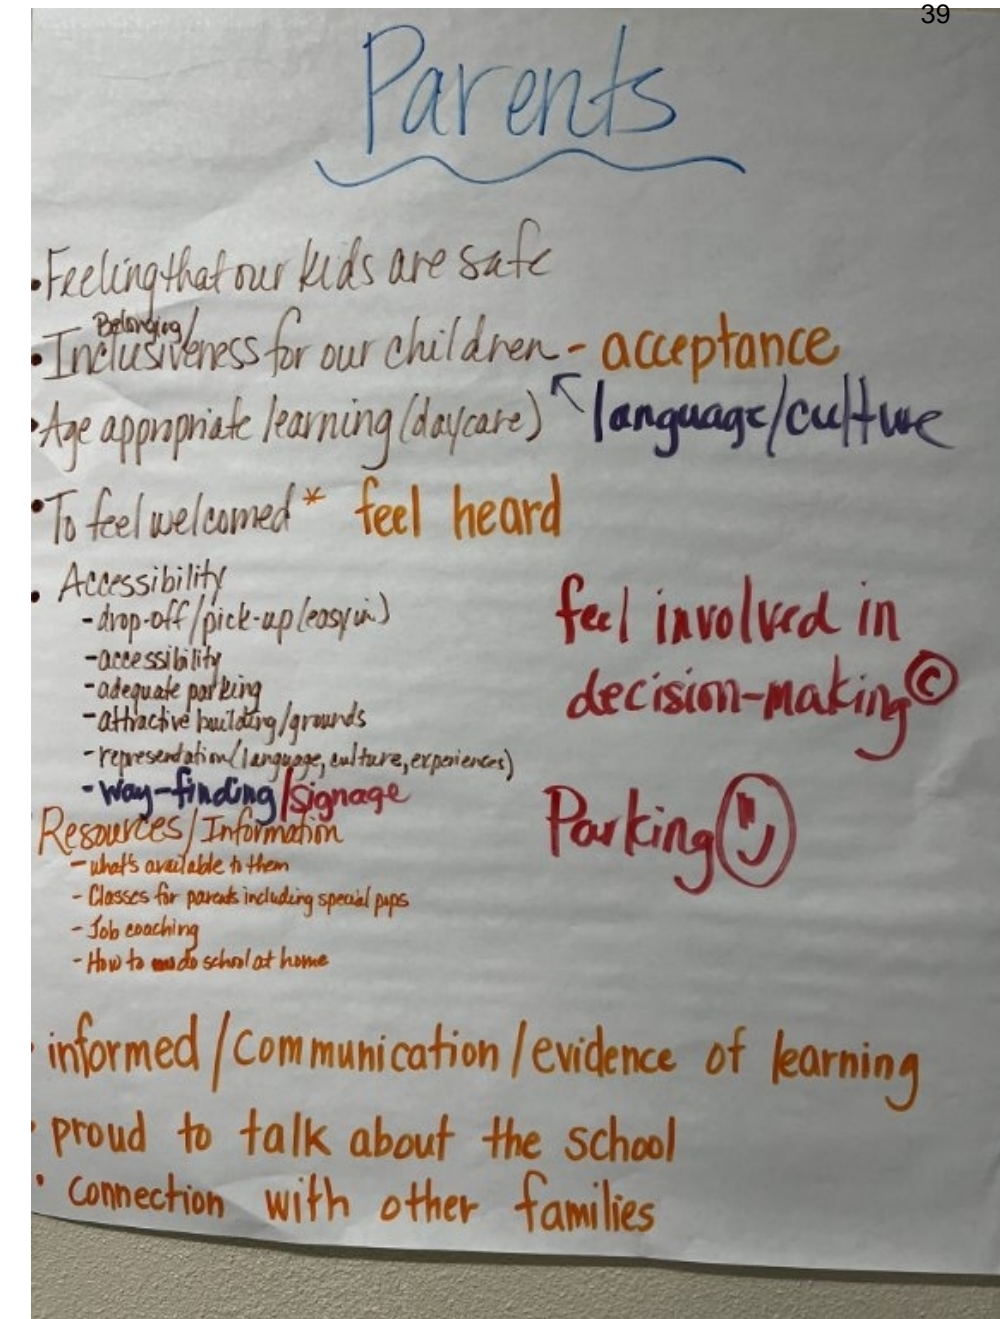 39
Parents
• Feeling that our kids are safe
Belonging/
• Inclusiveness for our children - acceptance
↖ language/culture
• Age appropriate learning (daycare)
• To feel welcomed * feel heard
• Accessibility
- drop-off/pick-up (easy in)
- accessibility
- adequate parking
- attractive building/grounds
- representation (language, culture, experiences)
- way-finding/signage
feel involved in
decision-making ©
Parking
Resources/Information
- what's available to them
- Classes for parents including special pops
- Job coaching
- How to do school at home
• informed/communication/evidence of learning
• proud to talk about the school
• connection with other families